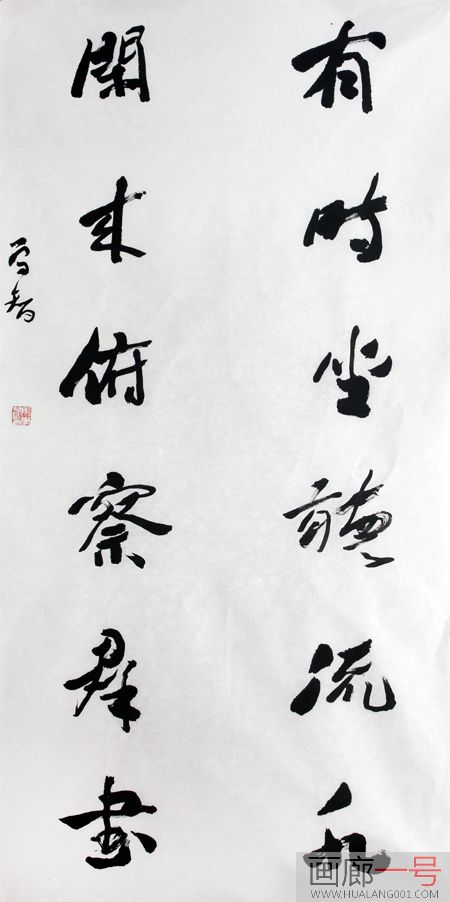 有时坐聽流水
閑来俯察群書
画廊一号
WWW.HUALANG001.COM